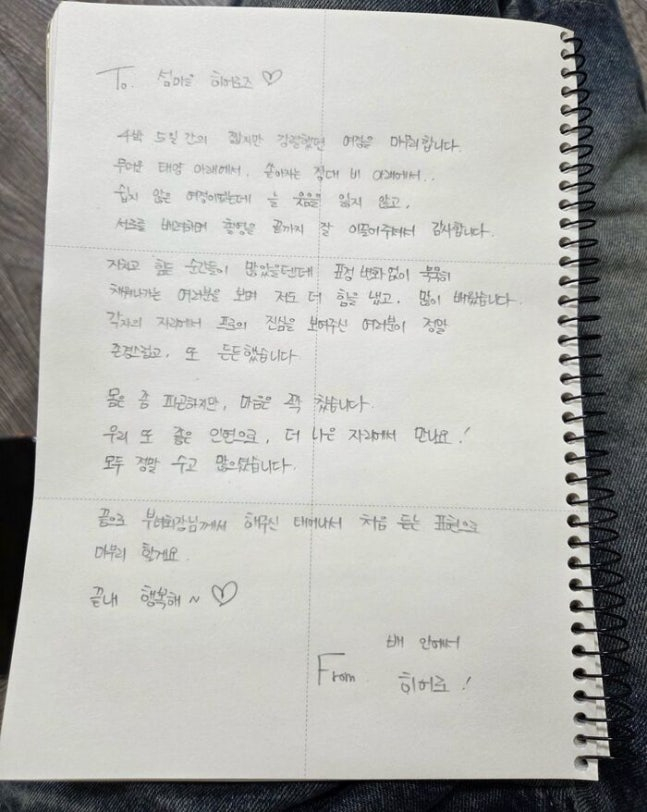 To. 섬마을 히어로즈 ♡
4박 5일간의 짧지만 강렬했던 여정을 마무리합니다.
무더운 태양 아래에서, 쏟아지는 장대 비 아래에서..
쉽지 않은 여정이었는데 늘 웃음을 잃지 않고,
서로를 배려하며 촬영을 끝까지 잘 이끌어주셔서 감사합니다.
지치고 힘든 순간들이 많았을텐데 표정 변화 없이 묵묵히
채워나가는 여러분을 보며 저도 더 힘을 냈고, 많이 배웠습니다.
각자의 자리에서 프로의 진심을 보여주신 여러분이 정말
존경스럽고, 또 든든했습니다.
몸은 좀 피곤하지만, 마음은 꽉 찼습니다.
우리 또 좋은 인연으로, 더 나은 자리에서 만나요!
모두 정말 수고 많으셨습니다.
끝으로 부녀회장님께서 해주신 태어나서 처음 듣는 표현으로
마무리 할게요.
끝내 행복해~ ♡
배 안에서
From 히어로!